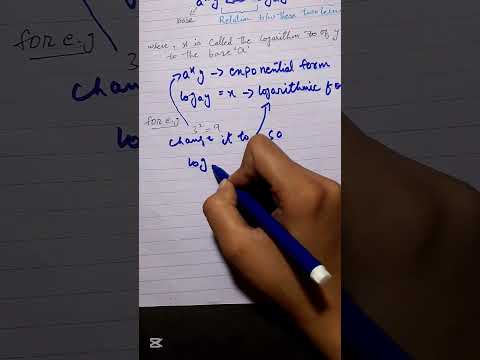 base Relation b/w these two terms
where, x is called the logarithm of y
to the base 'a'
for e.g
a^x y → exponential form
log a y = x → logarithmic
for e.g 3² = 9
change it to so
log